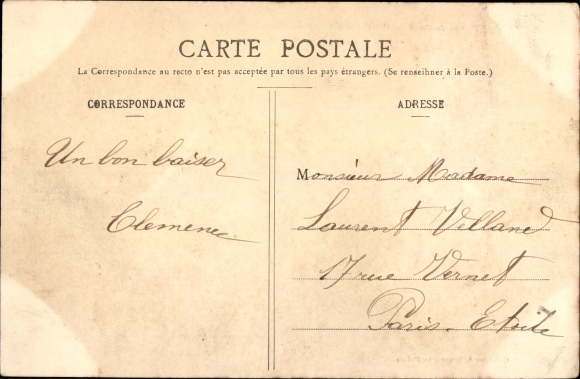 CARTE POSTALE
La Correspondance au recto n'est pas acceptée par tous les pays étrangers. (Se renseihner à la Poste.)
CORRESPONDANCE
Un bon baiser
Clemence
ADRESSE
Monsieur Madame
Laurent Velland
17 rue Vernet
Paris-Etoile